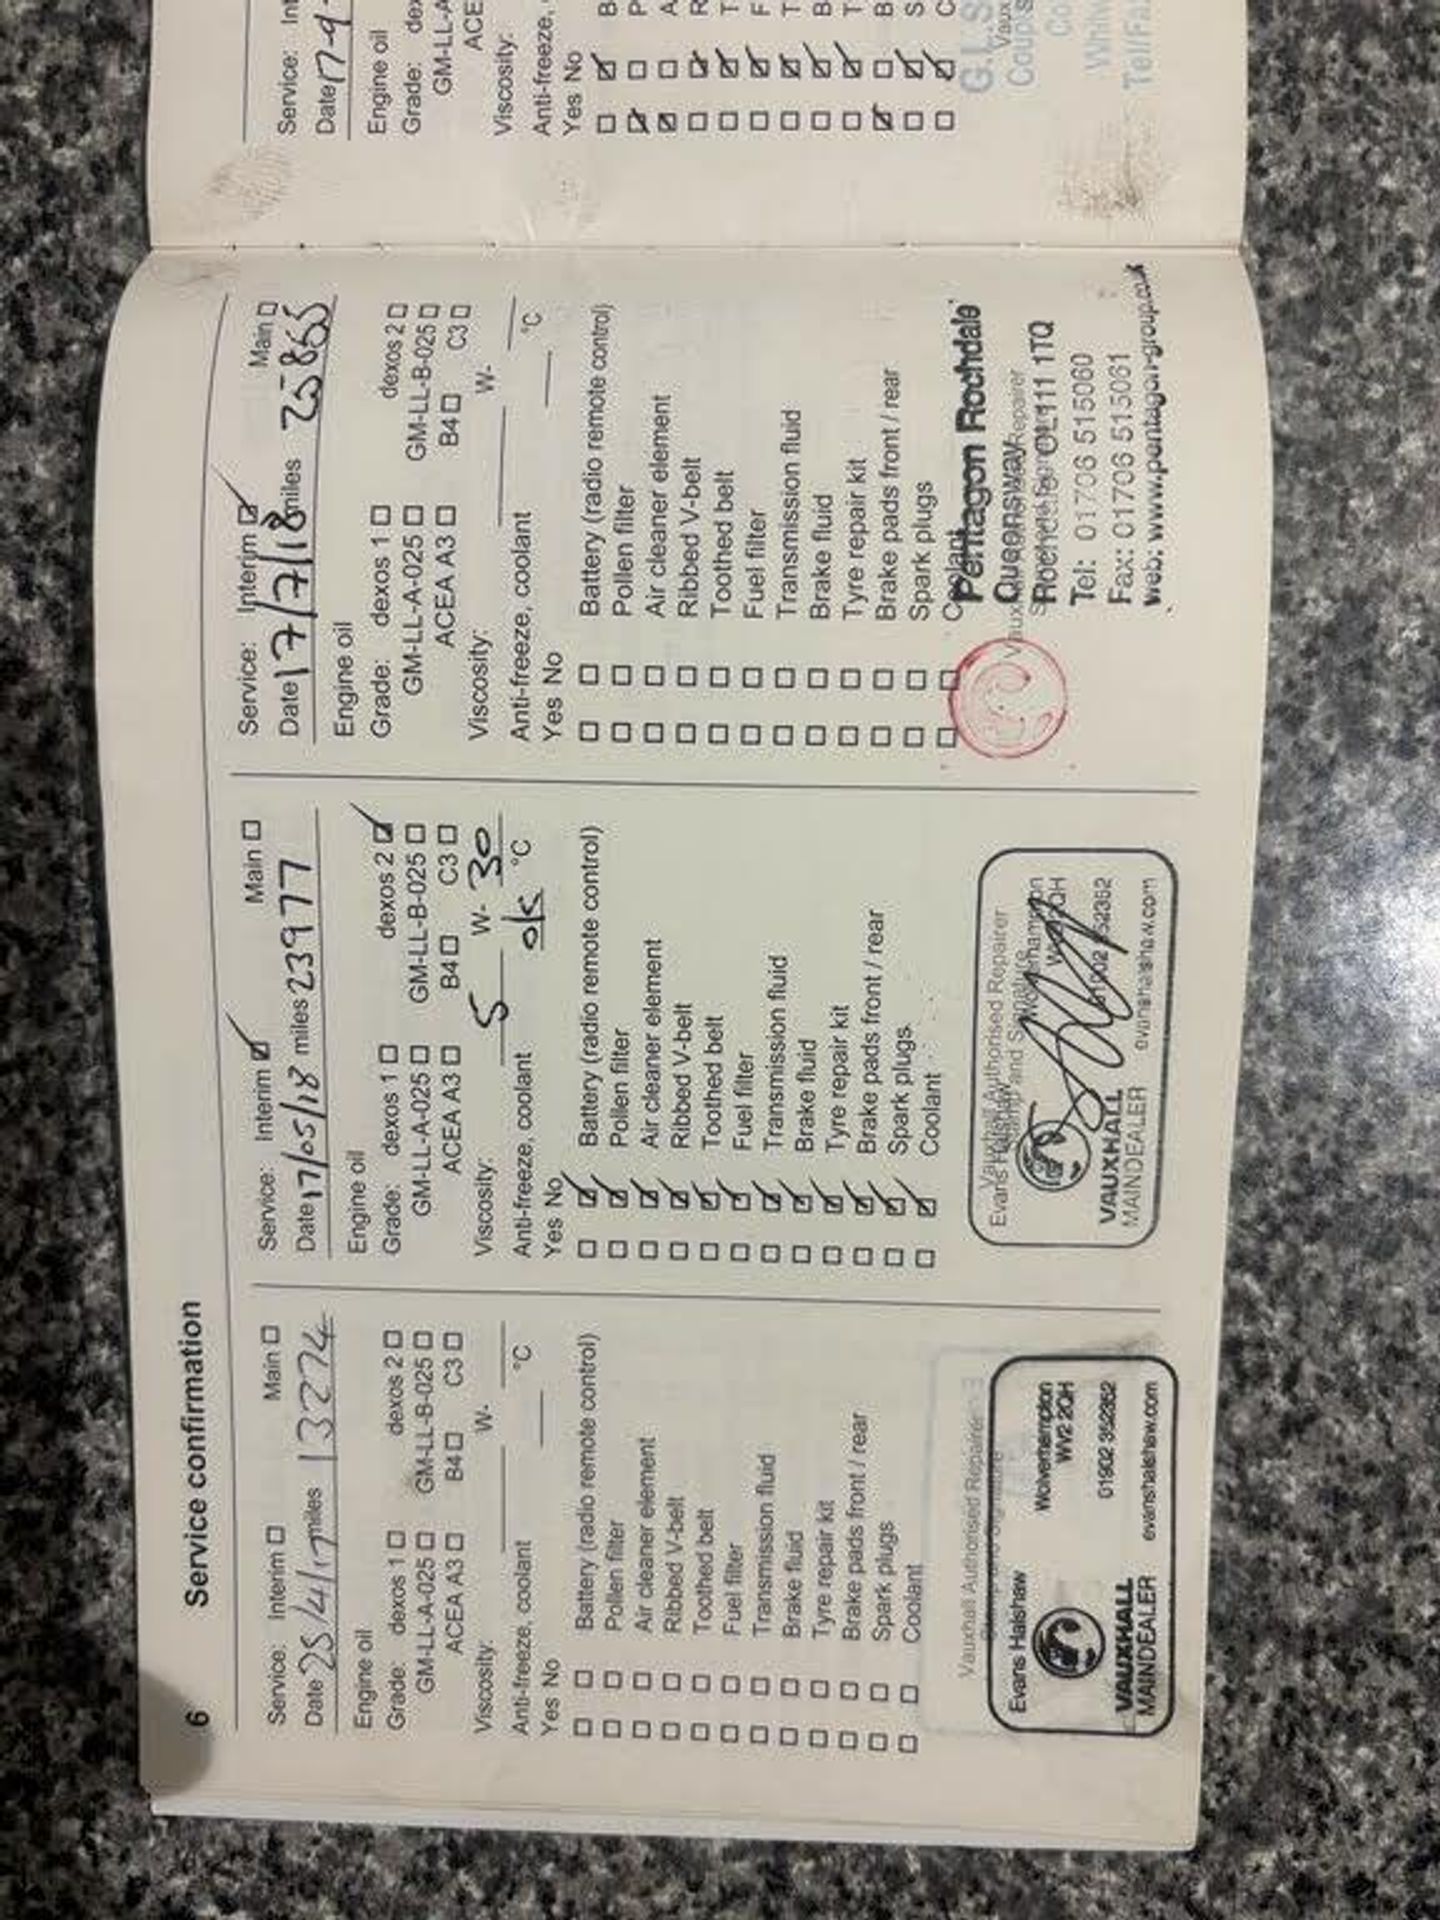 6 Service confirmation
Service: Interim ☐ Main ☐
Date 25/4/17 miles 13274
Engine oil
Grade: dexos 1 ☐ dexos 2 ☐
GM-LL-A-025 ☐ GM-LL-B-025 ☐
ACEA A3 ☐ B4 ☐ C3 ☐
Viscosity: W-
Anti-freeze, coolant °C
Yes No
☐ ☐ Battery (radio remote control)
☐ ☐ Pollen filter
☐ ☐ Air cleaner element
☐ ☐ Ribbed V-belt
☐ ☐ Toothed belt
☐ ☐ Fuel filter
☐ ☐ Transmission fluid
☐ ☐ Brake fluid
☐ ☐ Tyre repair kit
☐ ☐ Brake pads front / rear
☐ ☐ Spark plugs
☐ ☐ Coolant
Vauxhall Authorised Repairer
Evans Halshaw Wolverhampton
WV2 2QH
01902 352352
VAUXHALL
MAINDEALER evanshalshaw.com
Service: Interim ☑ Main ☐
Date 17/05/18 miles 23977
Engine oil
Grade: dexos 1 ☐ dexos 2 ☑
GM-LL-A-025 ☐ GM-LL-B-025 ☐
ACEA A3 ☐ B4 ☐ C3 ☐
Viscosity: 5 W- 30
Anti-freeze, coolant ok °C
Yes No
☐ ☑ Battery (radio remote control)
☐ ☑ Pollen filter
☐ ☑ Air cleaner element
☐ ☑ Ribbed V-belt
☐ ☑ Toothed belt
☐ ☑ Fuel filter
☐ ☑ Transmission fluid
☐ ☑ Brake fluid
☐ ☑ Tyre repair kit
☐ ☑ Brake pads front / rear
☐ ☑ Spark plugs
☐ ☑ Coolant
Vauxhall Authorised Repairer
Evans Halshaw and Signature
VAUXHALL
MAINDEALER evanshalshaw.com
Service: Interim ☑ Main ☐
Date 17/7/18 miles 25865
Engine oil
Grade: dexos 1 ☐ dexos 2 ☐
GM-LL-A-025 ☐ GM-LL-B-025 ☐
ACEA A3 ☐ B4 ☐ C3 ☐
Viscosity: W-
Anti-freeze, coolant °C
Yes No
☐ ☐ Battery (radio remote control)
☐ ☐ Pollen filter
☐ ☐ Air cleaner element
☐ ☐ Ribbed V-belt
☐ ☐ Toothed belt
☐ ☐ Fuel filter
☐ ☐ Transmission fluid
☐ ☐ Brake fluid
☐ ☐ Tyre repair kit
☐ ☐ Brake pads front / rear
☐ ☐ Spark plugs
☐ ☐ Coolant
Pentagon Rochdale
Queensway Repairer
Rochdale OL11 1TQ
Tel: 01706 515060
Fax: 01706 515061
web: www.pentagon-group.co.uk
Service: Int
Date 17-9-
Engine oil
Grade: dex
GM-LL-A
ACE
Viscosity:
Anti-freeze,
Yes No
☐ ☑ B
☑ ☐ P
☑ ☐ A
☐ ☑ R
☐ ☑ T
☐ ☑ F
☐ ☑ T
☐ ☑ B
☐ ☑ T
☑ ☐ B
☐ ☑ S
☐ ☑ C
G.I.S
Vaux
Tel/Fa